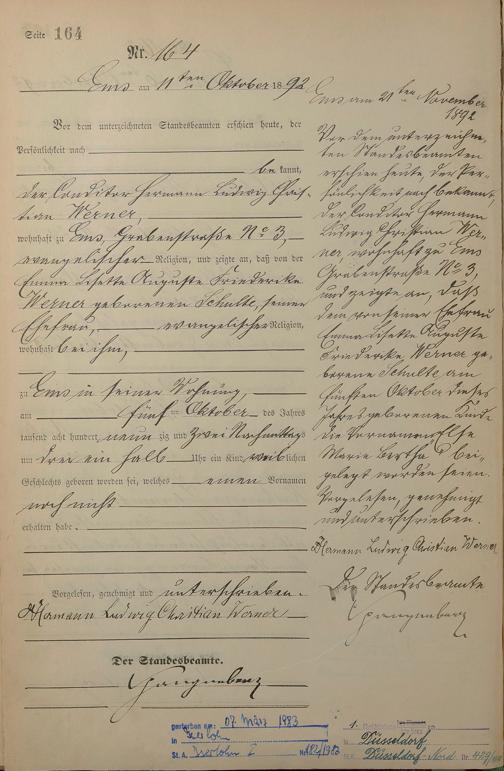 Seite 164
Nr. 164
Ems am 11ten Oktober 1892
Vor dem unterzeichneten Standesbeamten erschien heute, der
Persönlichkeit nach
bekannt,
der Conditor Hermann Ludwig Chris-
tian Werner,
wohnhaft zu Ems, Grabenstraße No 3,
evangelischer Religion, und zeigte an, daß von der
Emma Lisette Auguste Friederike
Werner geborenen Schulte, seiner
Ehefrau, evangelischer Religion,
wohnhaft bei ihm,
zu Ems in seiner Wohnung,
am fünf Oktober des Jahres
tausend acht hundert neunzig und zwei Nachmittags
um drei ein halb Uhr ein Kind weiblichen
Geschlechts geboren worden sei, welches einen Vornamen
noch nicht
erhalten habe.
Vorgelesen, genehmigt und unterschrieben.
Hermann Ludwig Christian Werner
Der Standesbeamte.
Ems am 21ten November
1892
Vor dem unterzeichne-
ten Standesbeamten
erschien heute, der Per-
sönlichkeit nach bekannt,
der Conditor Hermann
Ludwig Christian Wer-
ner, wohnhaft zu Ems
Grabenstraße No 3,
und zeigte an, daß
dem von seiner Ehefrau
Emma Lisette Auguste
Friederike Werner ge-
borene Schulte am
fünften Oktober dieses
Jahres geborenen Kinde
die Vornamen Else
Marie Bertha bei-
gelegt worden seien.
Vorgelesen, genehmigt
und unterschrieben.
Hermann Ludwig Christian Werner
Der Standesbeamte
gestorben am: 07. März 1983
in Iserlohn
St. A. Iserlohn I Nr. 182/1983
1.
in Düsseldorf
Düsseldorf-Nord Nr.